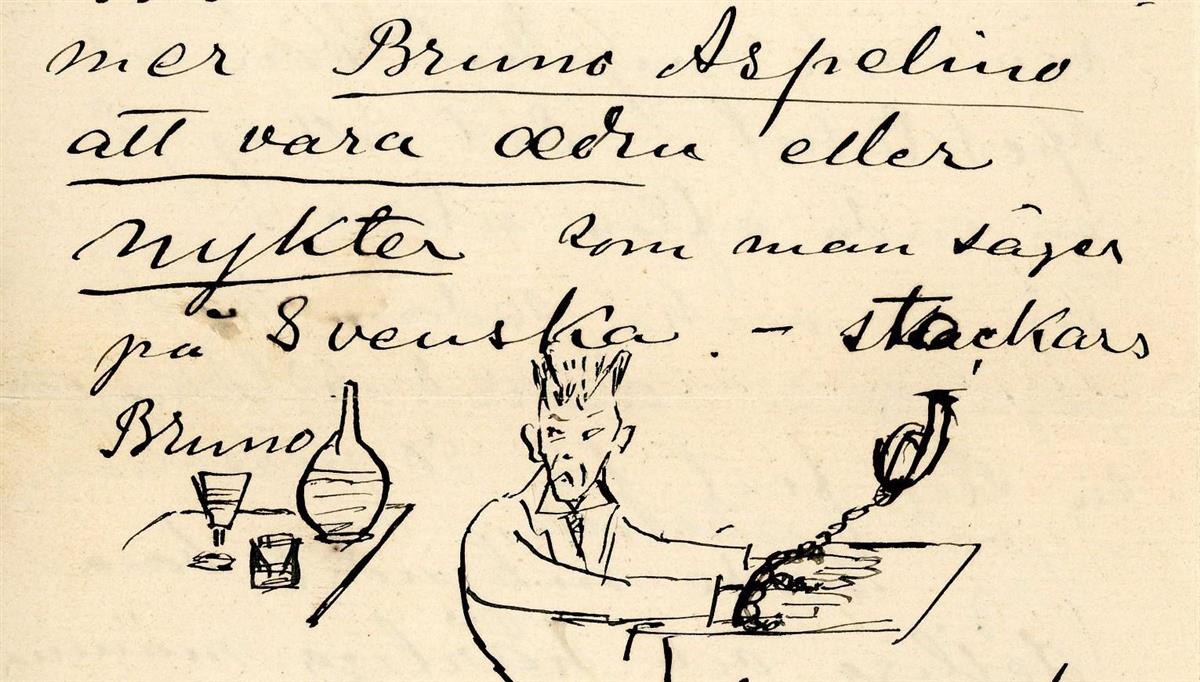 mer Bruno Aspelino
att vara œdru eller
nykter som man säger
på Svenska. – stackars
Bruno